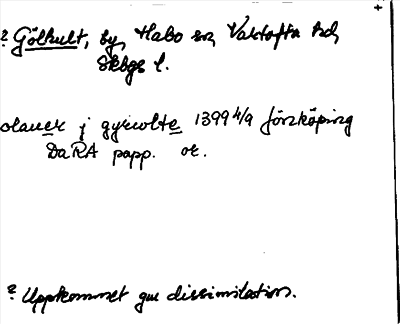 ? Gölhult, by, Habo sn, Vartofta hd,
Skbgs l.
olauer j gyrwlte 1399 4/9 Jönköping
DaRA papp. or.
? Uppkommet gm dissimilation.